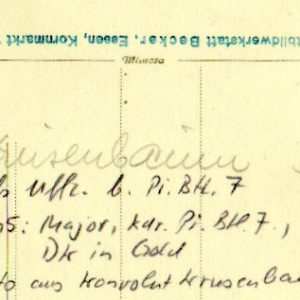 tbildwerkstatt Becker, Essen, Kornmarkt
Mimosa
usenbaum
Uffz. b. Pi. Btl. 7
5: Major, Kdr. Pi. Btl. 7.,
Dk in Gold
to aus Konvolut Krusenba